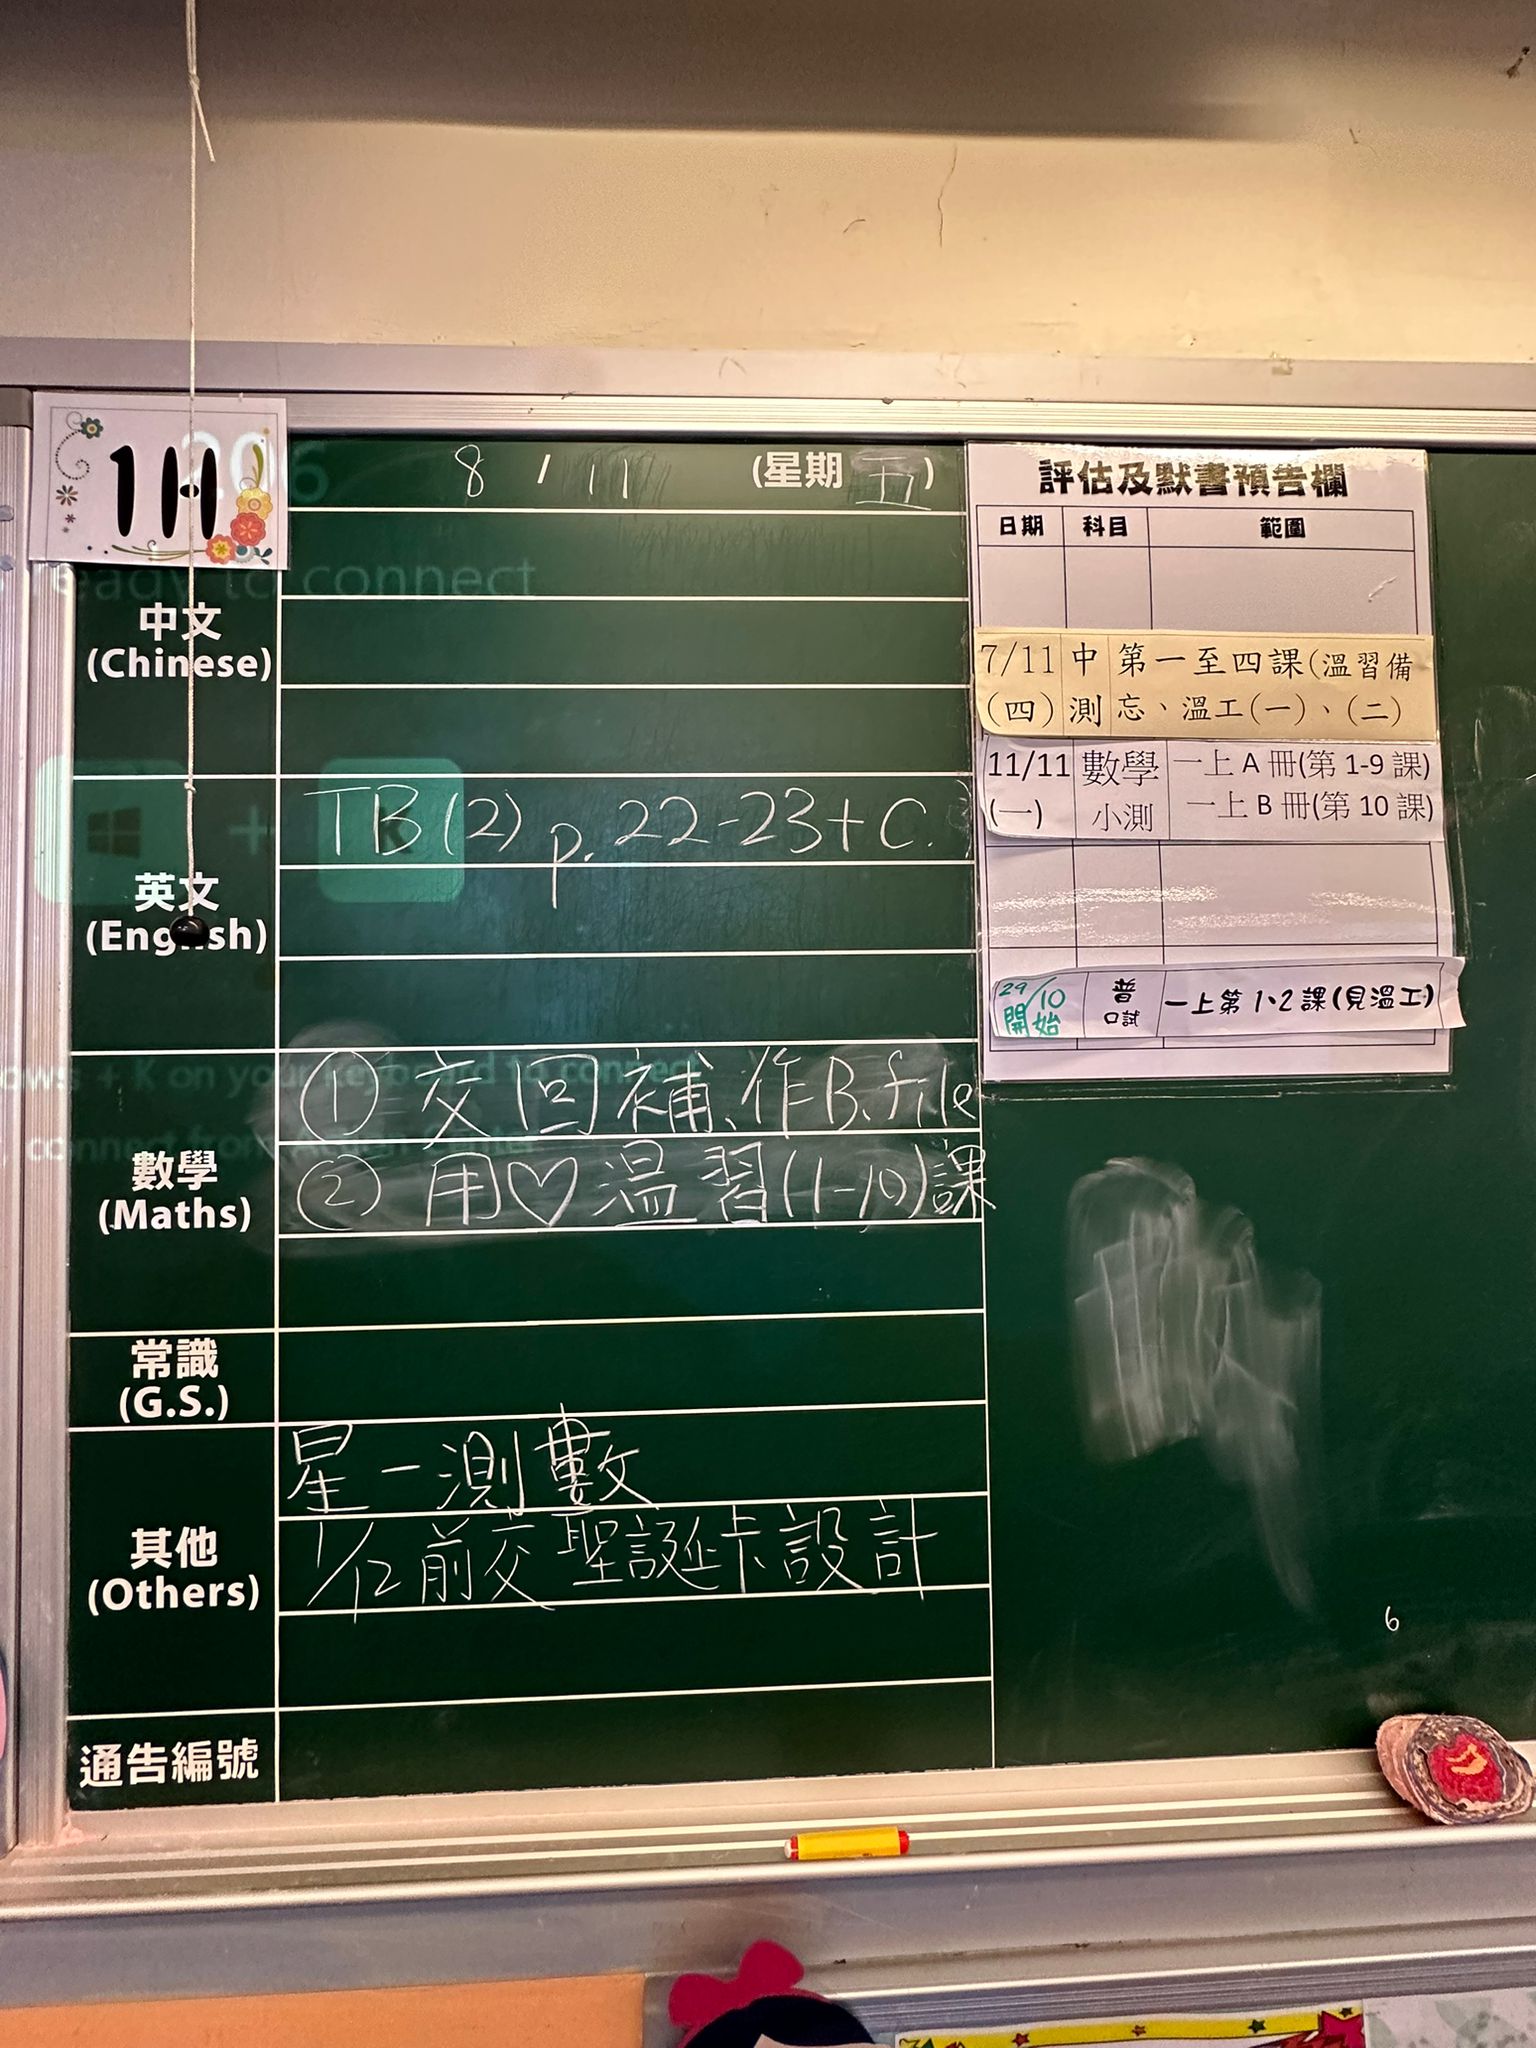 1H
206
8 / 11 (星期 五)
ready to connect
中文
(Chinese)
英文
(English)
TB(2) p. 22-23 + C.
+ K
數學
(Maths)
① 交回補、作B、file
② 用♡溫習(1-10)課
常識
(G.S.)
其他
(Others)
星一測數
1/12前交聖誕卡設計
通告編號
評估及默書預告欄
日期 科目 範圍
7/11 中 第一至四課(溫習備
(四) 測 忘、溫工(一)、(二)
11/11 數學 一上 A 冊(第 1-9 課)
(一) 小測 一上 B 冊(第 10 課)
29/10 普 一上第 1、2 課(見溫工)
開始 口試
6